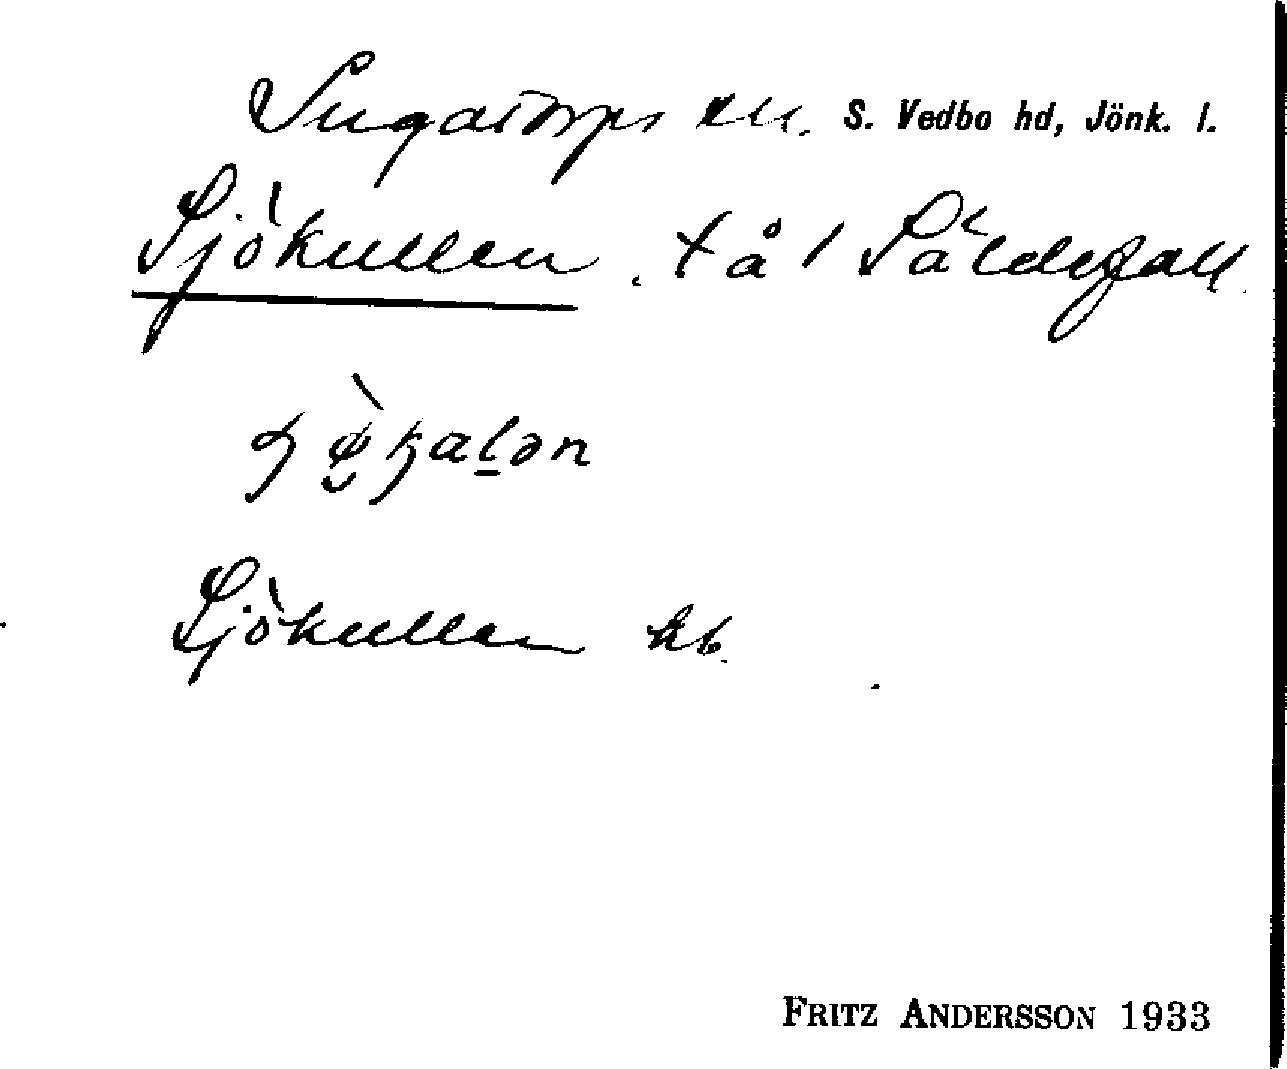 Ingatorps sn. S. Vedbo hd, Jönk. l.
Sjökullen. t å 1 Säldefall.
Sjökullen kb.
FRITZ ANDERSSON 1933